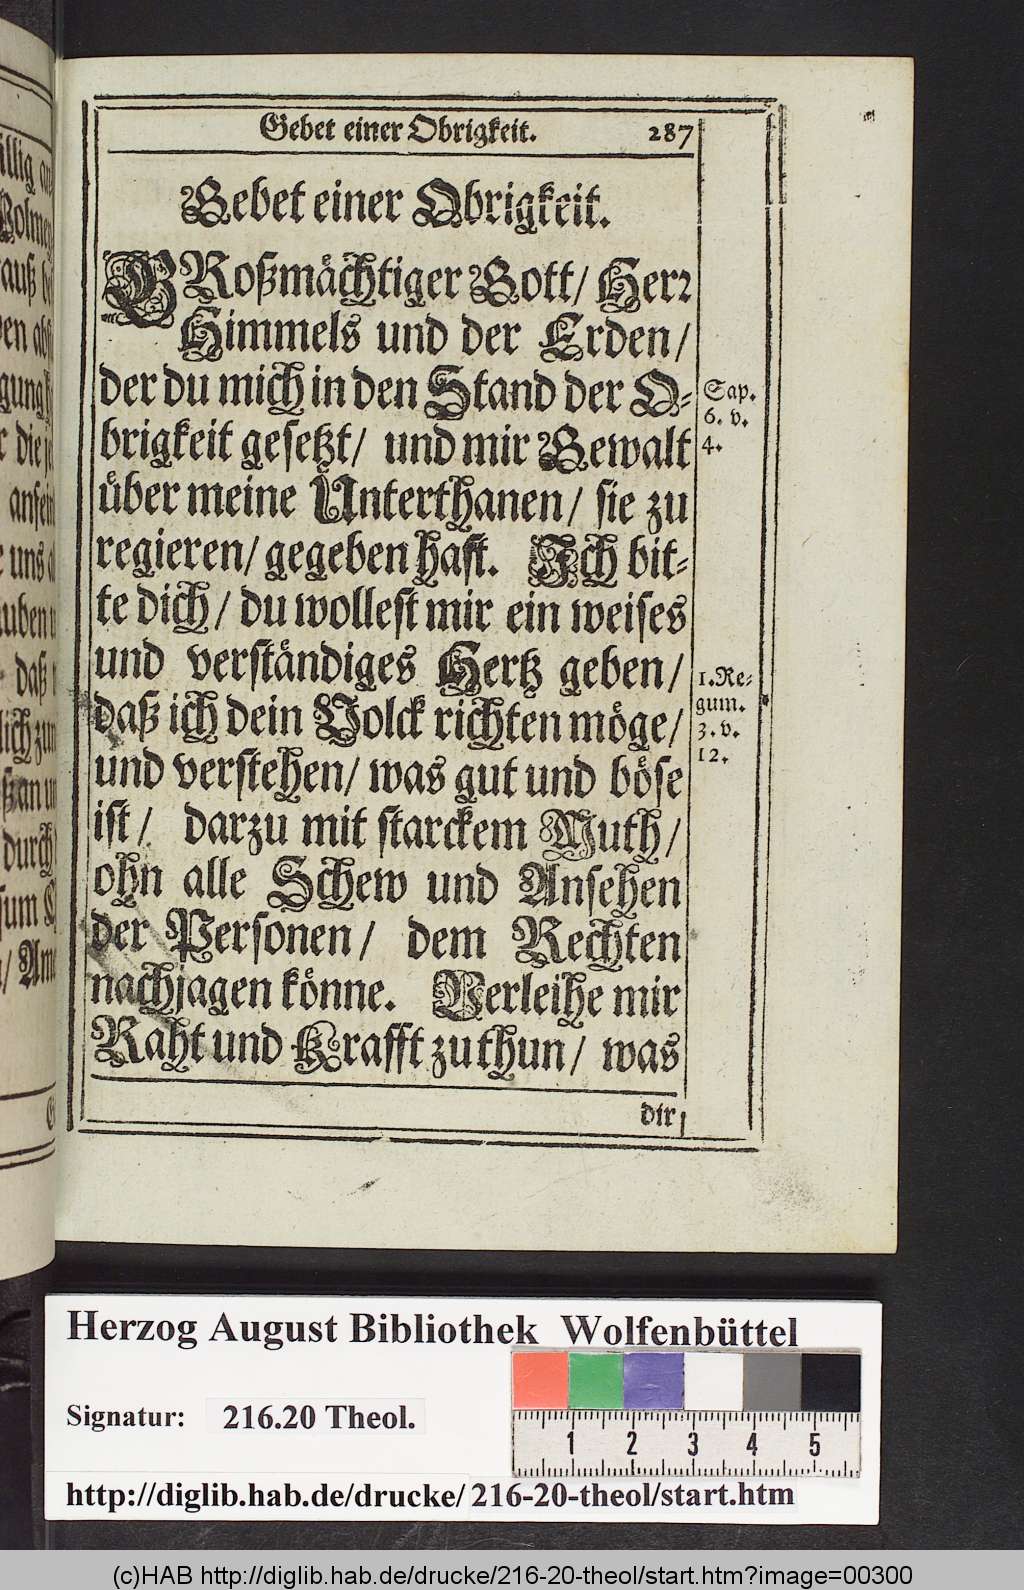 Gebet einer Obrigkeit. 287
Gebet einer Obrigkeit.
GRoßmächtiger Gott/ Herꝛ
Himmels und der Erden/
der du mich in den Stand der O-
brigkeit gesetzt/ und mir Gewalt
über meine Unterthanen/ sie zu
regieren/ gegeben hast. Ich bit-
te dich/ du wollest mir ein weises
und verständiges Hertz geben/
daß ich dein Volck richten möge/
und verstehen/ was gut und böse
ist/ darzu mit starckem Muth/
ohn alle Schew und Ansehen
der Personen/ dem Rechten
nachjagen könne. Verleihe mir
Raht und Krafft zu thun/ was
dir
Sap.
6. v.
4.
1. Re-
gum.
3. v.
12.
illig
auß
die
uns
daß
durch
Herzog August Bibliothek Wolfenbüttel
Signatur: 216.20 Theol.
1 2 3 4 5
http://diglib.hab.de/drucke/216-20-theol/start.htm
(c)HAB http://diglib.hab.de/drucke/216-20-theol/start.htm?image=00300